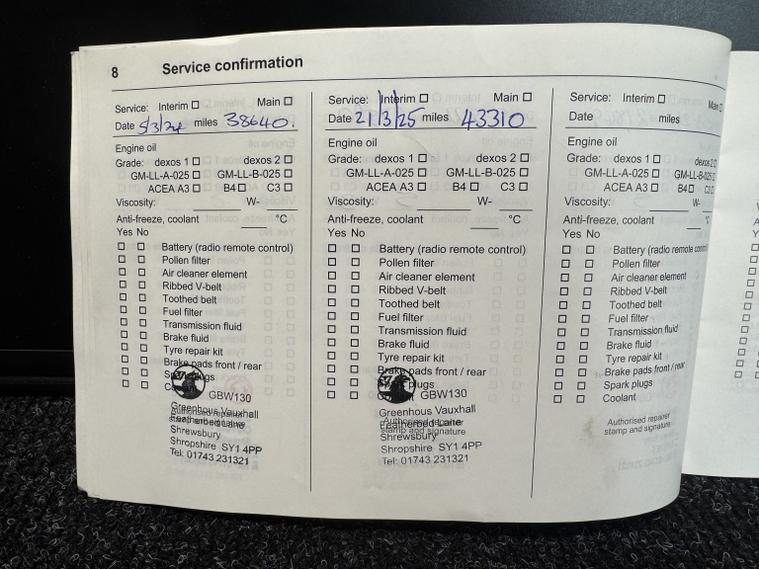 8 Service confirmation
Service: Interim ☐ Main ☐
Date 5/3/24 miles 38640.
Engine oil
Grade: dexos 1 ☐ dexos 2 ☐
GM-LL-A-025 ☐ GM-LL-B-025 ☐
ACEA A3 ☐ B4 ☐ C3 ☐
Viscosity: W-
Anti-freeze, coolant °C
Yes No
☐ ☐ Battery (radio remote control)
☐ ☐ Pollen filter
☐ ☐ Air cleaner element
☐ ☐ Ribbed V-belt
☐ ☐ Toothed belt
☐ ☐ Fuel filter
☐ ☐ Transmission fluid
☐ ☐ Brake fluid
☐ ☐ Tyre repair kit
☐ ☐ Brake pads front / rear
☐ ☐ Spark plugs
☐ ☐ Coolant
GBW130
Greenhous Vauxhall
Authorised repairer
Featherbed Lane
stamp and signature
Shrewsbury
Shropshire SY1 4PP
Tel: 01743 231321
Service: Interim ☐ Main ☐
Date 21/3/25 miles 43310
Engine oil
Grade: dexos 1 ☐ dexos 2 ☐
GM-LL-A-025 ☐ GM-LL-B-025 ☐
ACEA A3 ☐ B4 ☐ C3 ☐
Viscosity: W-
Anti-freeze, coolant °C
Yes No
☐ ☐ Battery (radio remote control)
☐ ☐ Pollen filter
☐ ☐ Air cleaner element
☐ ☐ Ribbed V-belt
☐ ☐ Toothed belt
☐ ☐ Fuel filter
☐ ☐ Transmission fluid
☐ ☐ Brake fluid
☐ ☐ Tyre repair kit
☐ ☐ Brake pads front / rear
☐ ☐ plugs
☐ ☐ Coolant
GBW130
Greenhous Vauxhall
Authorised repairer
Featherbed Lane
stamp and signature
Shrewsbury
Shropshire SY1 4PP
Tel: 01743 231321
Service: Interim ☐ Main ☐
Date miles
Engine oil
Grade: dexos 1 ☐ dexos 2 ☐
GM-LL-A-025 ☐ GM-LL-B-025 ☐
ACEA A3 ☐ B4 ☐ C3 ☐
Viscosity: W-
Anti-freeze, coolant °C
Yes No
☐ ☐ Battery (radio remote control)
☐ ☐ Pollen filter
☐ ☐ Air cleaner element
☐ ☐ Ribbed V-belt
☐ ☐ Toothed belt
☐ ☐ Fuel filter
☐ ☐ Transmission fluid
☐ ☐ Brake fluid
☐ ☐ Tyre repair kit
☐ ☐ Brake pads front / rear
☐ ☐ Spark plugs
☐ ☐ Coolant
Authorised repairer
stamp and signature